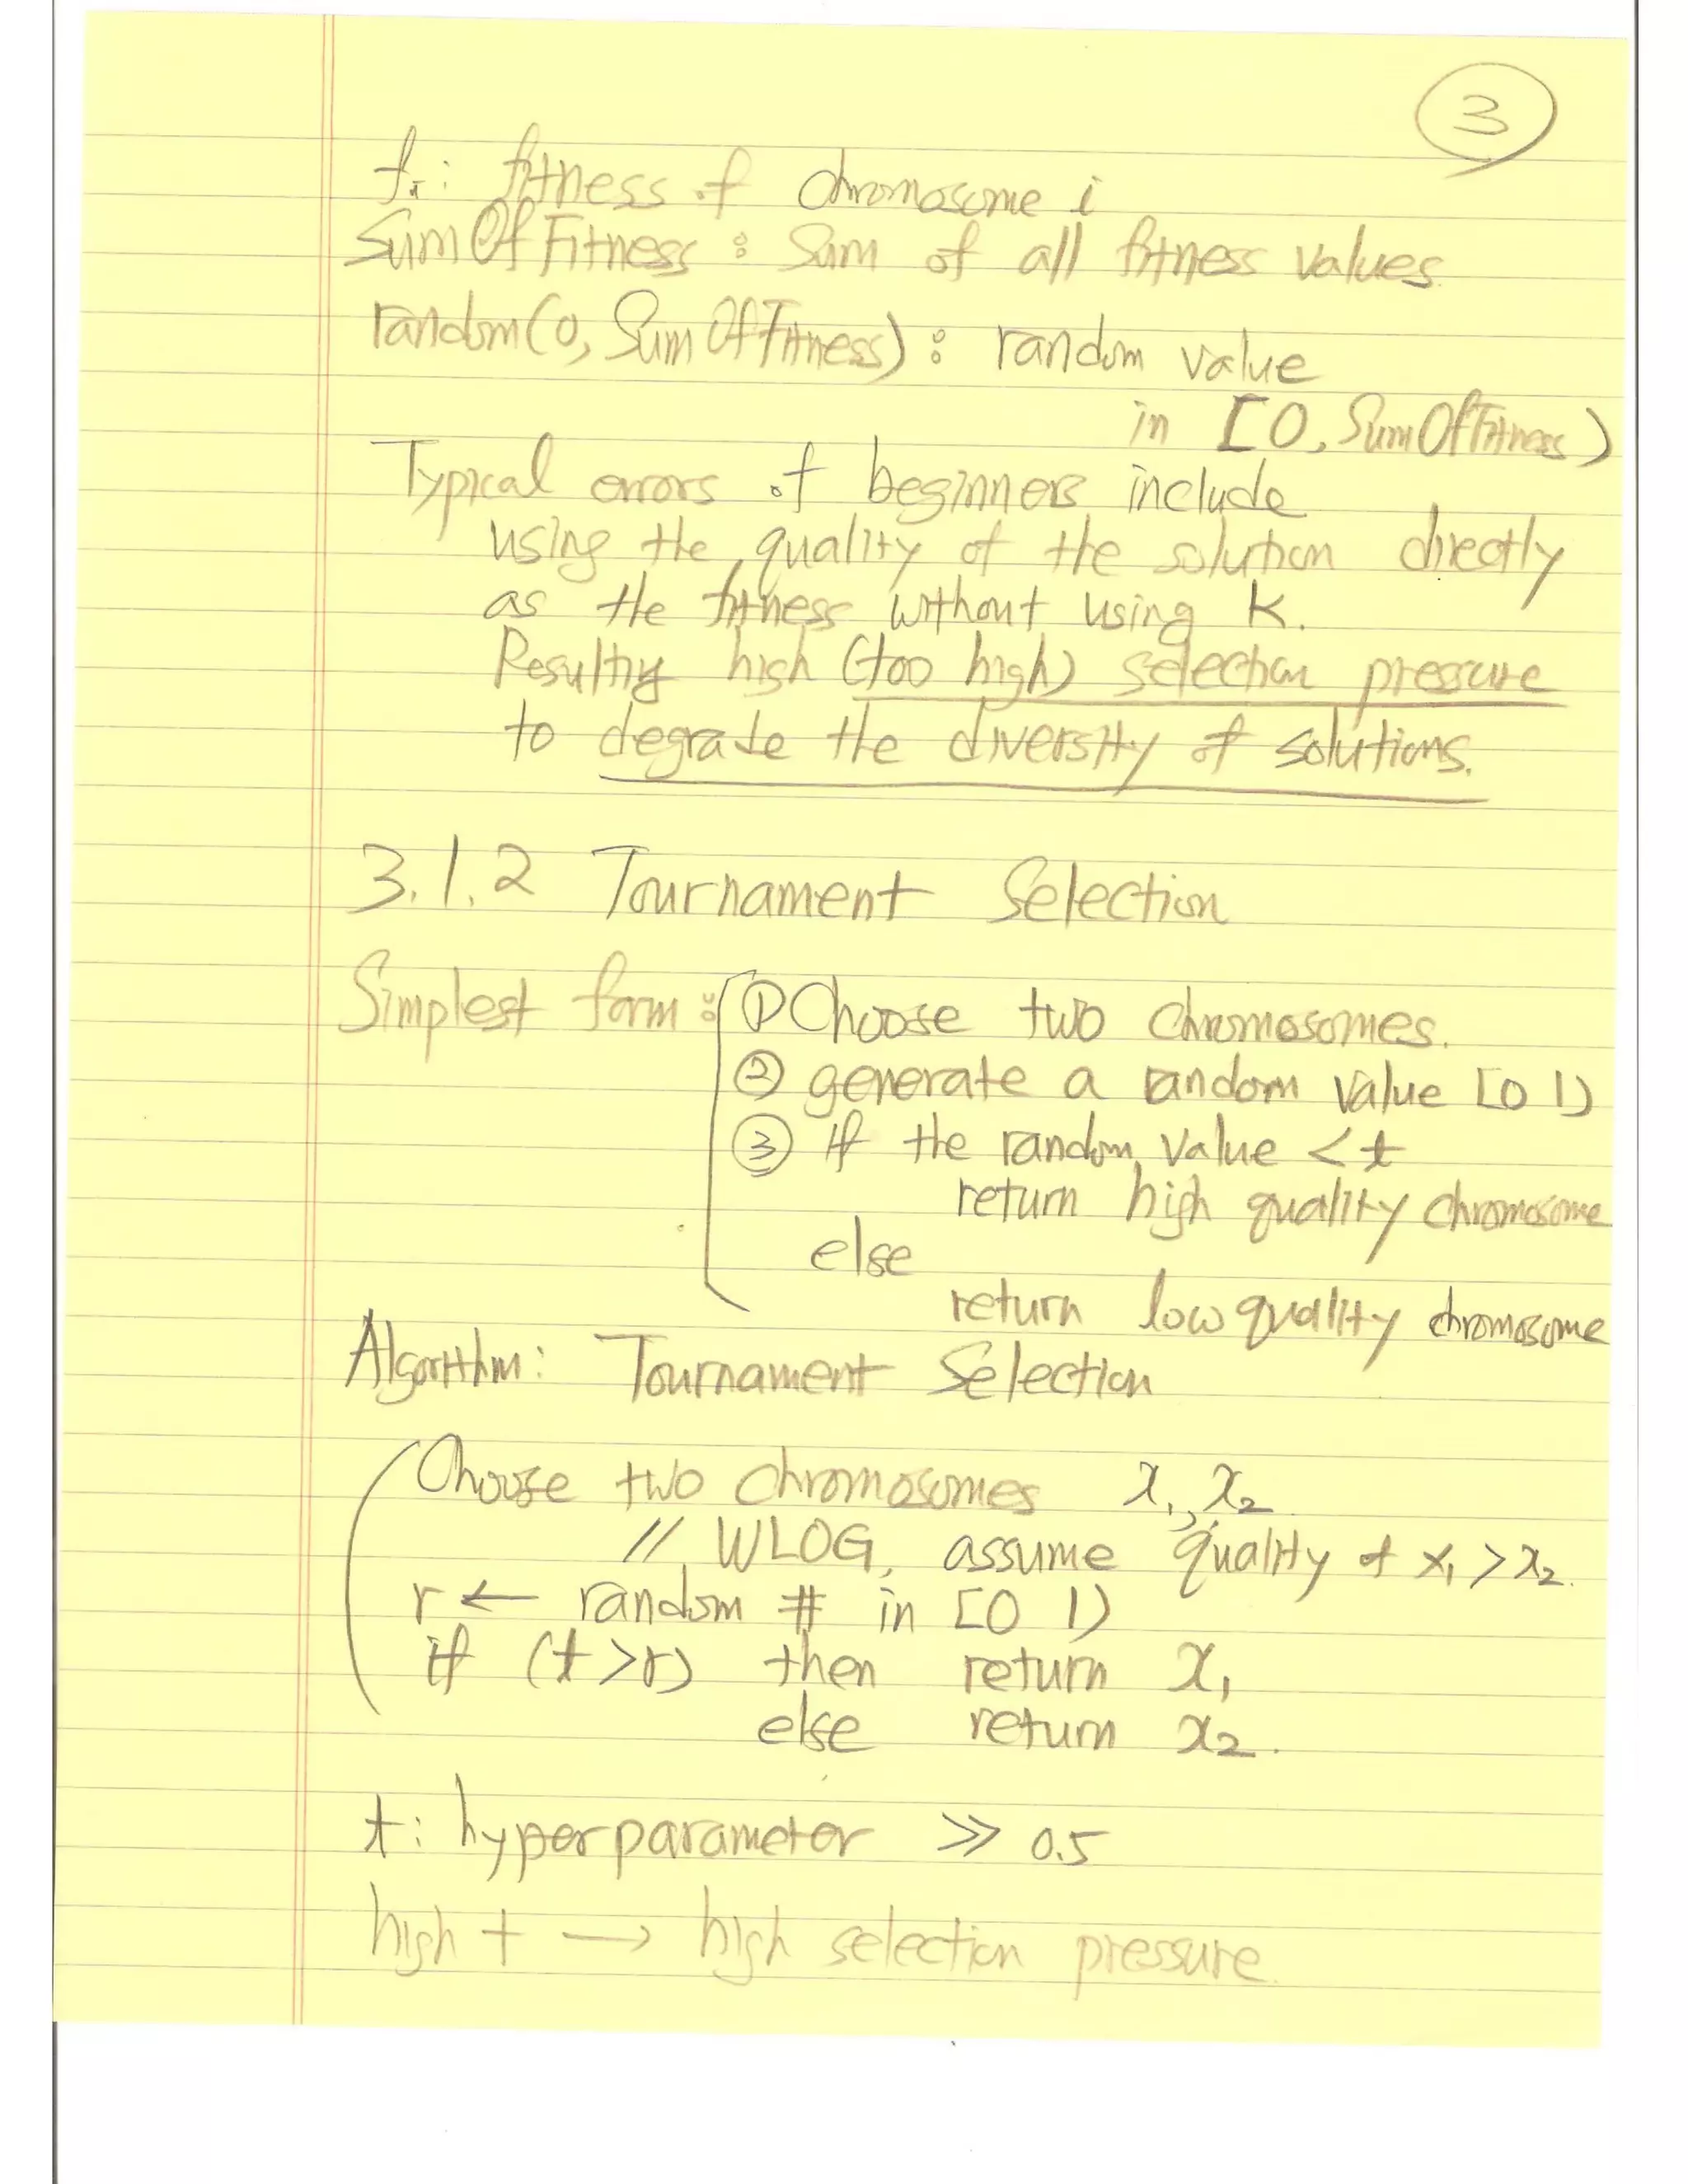 3
fi: fitness of chromosome i
SumOfFitness: Sum of all fitness values.
random(0, SumOfFitness): random value
in [0, SumOfFitness)
Typical errors of beginners include
using the quality of the solution directly
as the fitness without using K.
Resulting high (too high) selection pressure
to degrade the diversity of solutions.
3.1.2 Tournament Selection
Simplest form: ① Choose two chromosomes.
② generate a random value [0 1)
③ If the random value < t
return high quality chromosome
else
return low quality chromosome
Algorithm: Tournament Selection
Choose two chromosomes x1, x2
// WLOG, assume quality of x1 > x2.
r ← random # in [0 1)
if (t > r) then return x1
else return x2.
t: hyperparameter ≫ 0.5
high t → high selection pressure.